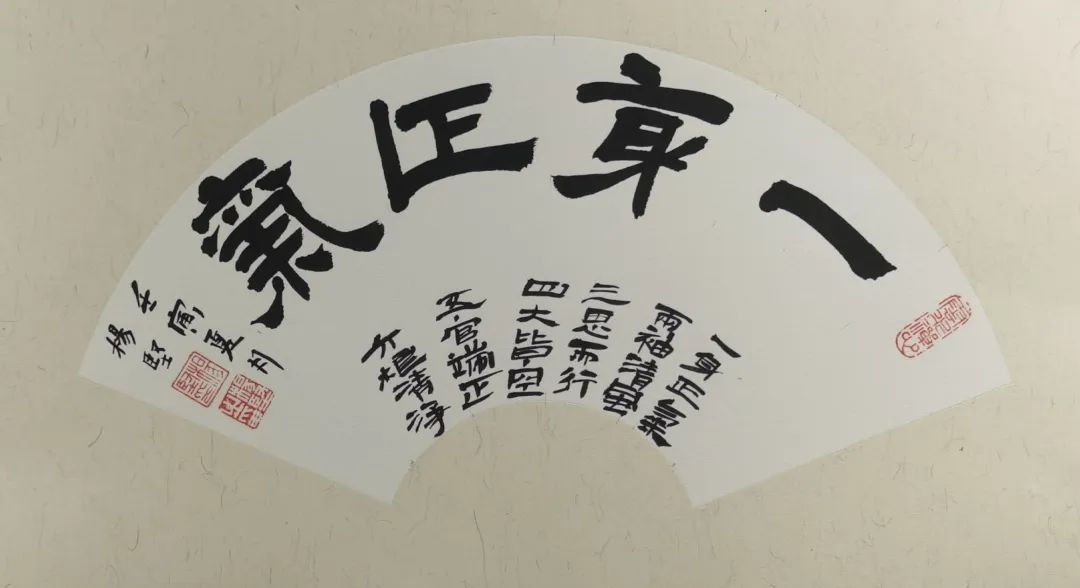 一身正氣
一身正氣
兩袖清風
三思而行
四大皆空
五官端正
六根清淨
壬寅夏
楊堅